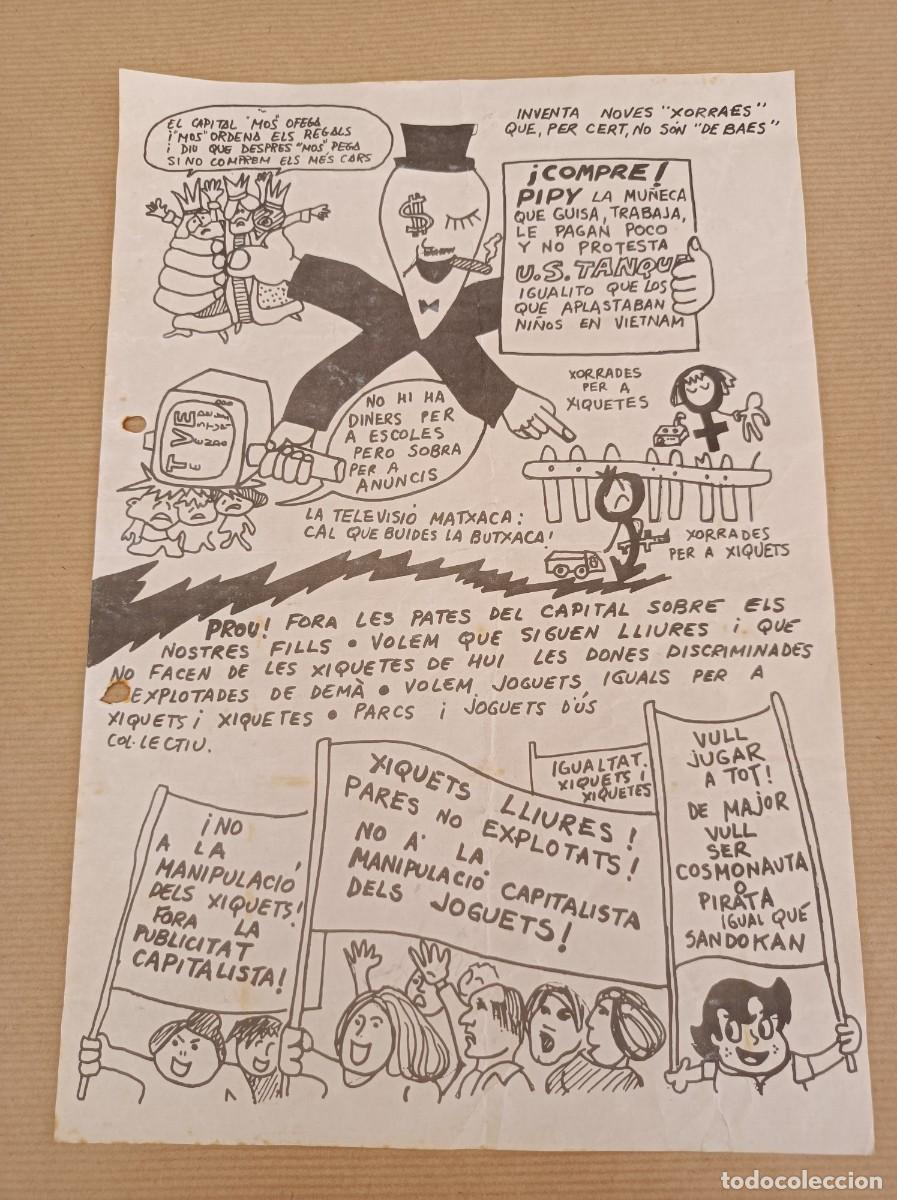 EL CAPITAL "MOS" OFEGA
i "MOS" ORDENA ELS REGALS
i DIU QUE DESPRES "MOS" PEGA
SI NO COMPREM ELS MÉS CARS
INVENTA NOVES "XORRAES"
QUE, PER CERT, NO SÓN "DE BAES"
¡COMPRE!
PIPY LA MUÑECA
QUE GUISA, TRABAJA,
LE PAGAN POCO
Y NO PROTESTA
U.S. TANQUE
IGUALITO QUE LOS
QUE APLASTABAN
NIÑOS EN VIETNAM
$
XORRADES
PER A
XIQUETES
TVE
NO HI HA
DINERS PER
A ESCOLES
PERO SOBRA
PER A
ANUNCIS
LA TELEVISIÓ MATXACA:
CAL QUE BUIDES LA BUTXACA!
XORRADES
PER A XIQUETS
PROU! FORA LES PATES DEL CAPITAL SOBRE ELS
NOSTRES FILLS • VOLEM QUE SIGUEN LLIURES i QUE
NO FACEN DE LES XIQUETES DE HUI LES DONES DISCRIMINADES
EXPLOTADES DE DEMÀ • VOLEM JOGUETS IGUALS PER A
XIQUETS i XIQUETES • PARCS i JOGUETS D'ÚS
COL·LECTIU.
¡NO
A LA
MANIPULACIÓ
DELS XIQUETS!
FORA LA
PUBLICITAT
CAPITALISTA!
XIQUETS LLIURES!
PARES NO EXPLOTATS!
NO A LA
MANIPULACIÓ CAPITALISTA
DELS JOGUETS!
IGUALTAT
XIQUETS i
XIQUETES
VULL
JUGAR
A TOT!
DE MAJOR
VULL
SER
COSMONAUTA
O
PIRATA
IGUAL QUÉ
SANDOKAN
todocoleccion